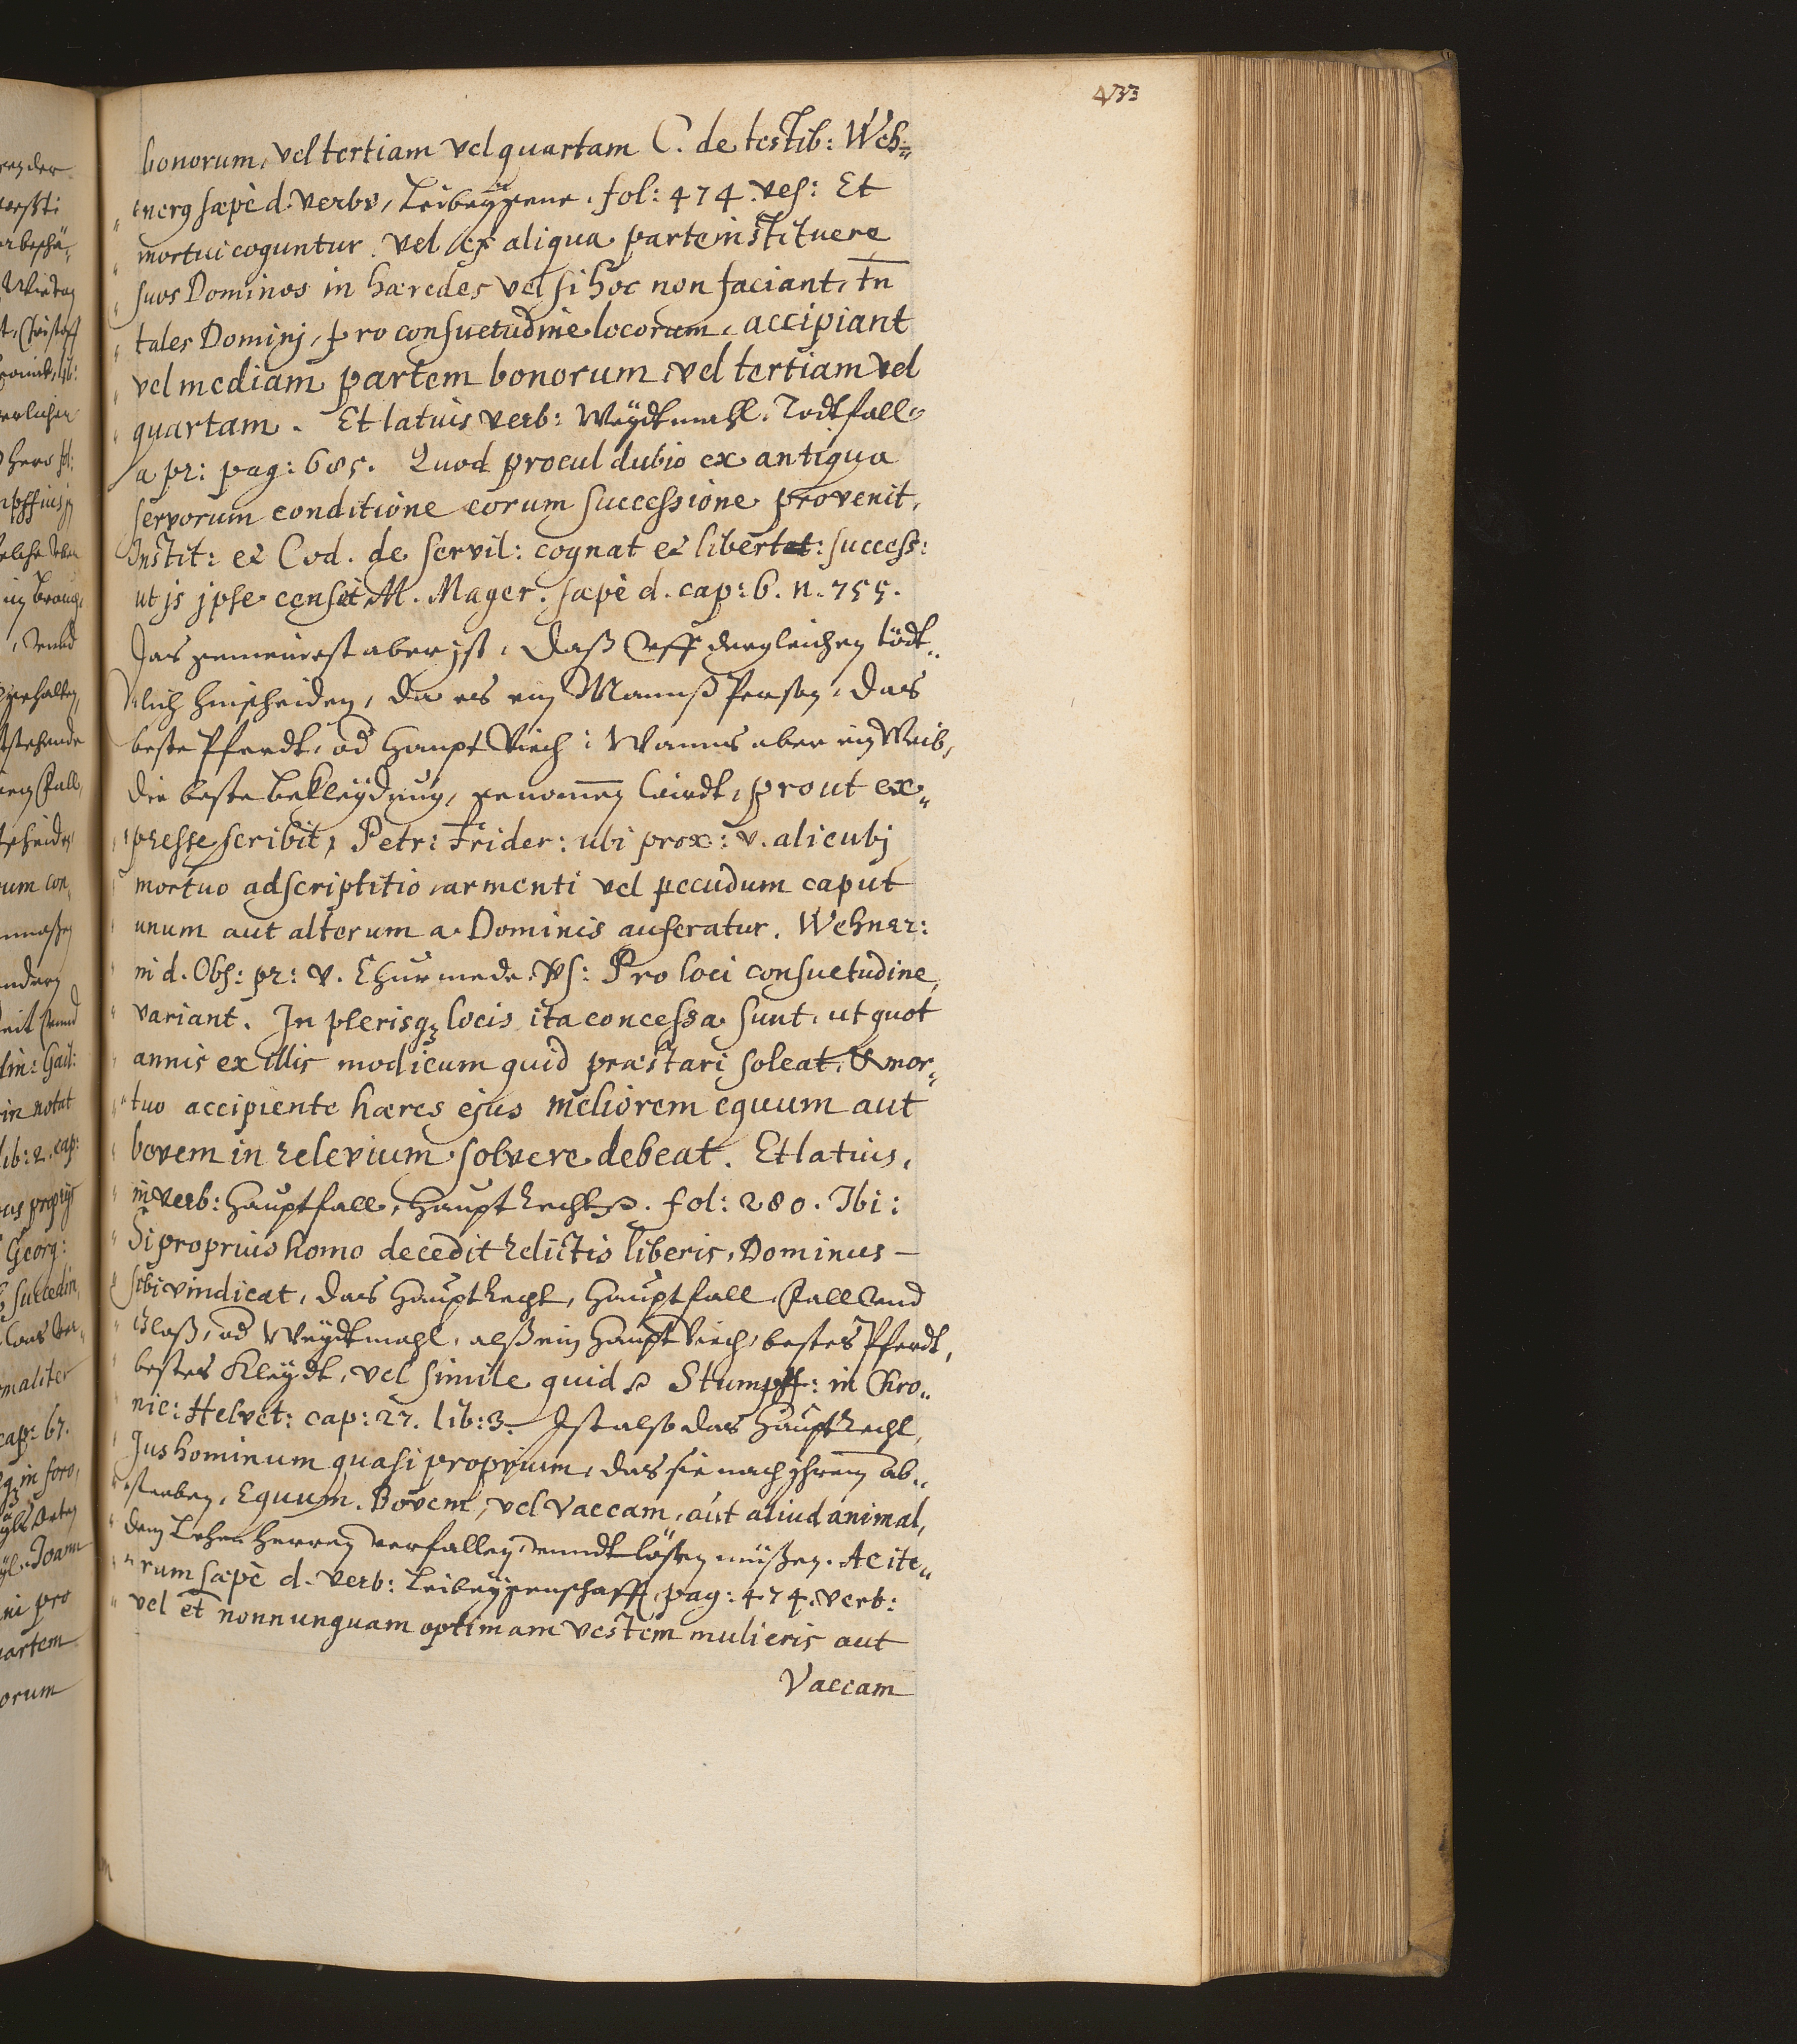 433
bonorum, vel tertiam vel quartam C. de testib: Weh=
nerg sæpè d. verbo, Leibeygene. fol: 474. ves: Et
mortui coguntur vel ex aliqua parte instituere
suos Dominos in hæredes vel si hoc non faciant, tn̄
tales Dominj, pro consuetudine locorum, accipiant
vel mediam partem bonorum, vel tertiam vel
quartam. Et latuis verb: Weydtmahl. Todtfall
a pr: pag: 685. Quod procul dubio ex antiqua
servorum conditione eorum successione provenit,
Instit: et Cod. de servil: cognat et libertat: success:
ut js jpse censet M. Mager. sæpè d. cap: 6. n. 755.
Das gemeinest aber jst, Daß vff dergleichen tödt„
lich hinscheiden, da es ein Mannß Person, das
beste Pferdt, od Haupt Viech: Wanns aber ein Weib,
die beste bekleydung, genom̄en wirdt, prout ex„
presse scribit, Petr: Frider: ubi prox: v. alicubj
mortuo adscriptitio, armenti vel pecudum caput
unum aut alterum a Dominis auferatur. Wehner:
in d. Obs: pr: v. Churmede. Vs: Pro loci consuetudine
variant. In plerisq locis ita concessa sunt, ut quot
annis ex illis modicum quid præstari soleat, & mor„
tuo accipiente hæres ejus meliorem equum aut
bovem in relevium solvere debeat. Et latius,
in verb: Hauptfall, Hauptrecht. fol: 280. Ibi:
Si proprius homo decedit relictis liberis, Dominus
sibi vindicat, das Hauptrecht, Hauptfall, Fall vnd
Glaß, od Weydtmahl, alß ein Haupt Viech, bestes Pferdt,
bestes Kleydt, vel simile quid Stumpff: in Chro„
nic: Helvet: cap: 27. lib: 3. Ist also das Hauptrecht,
Jus hominum quasi proprium, das sie nach jhrem ab„
sterben, Equum, Bovem, vel Vaccam, aut aliud animal,
dem Lehen Herren verfallen, vnndt lößen müßen. Ac ite„
rum sæpè d. verb: Leibeygenschafft, pag: 474. verb:
vel et̄ nonnunquam optimam vestem mulieris aut
Vaccam